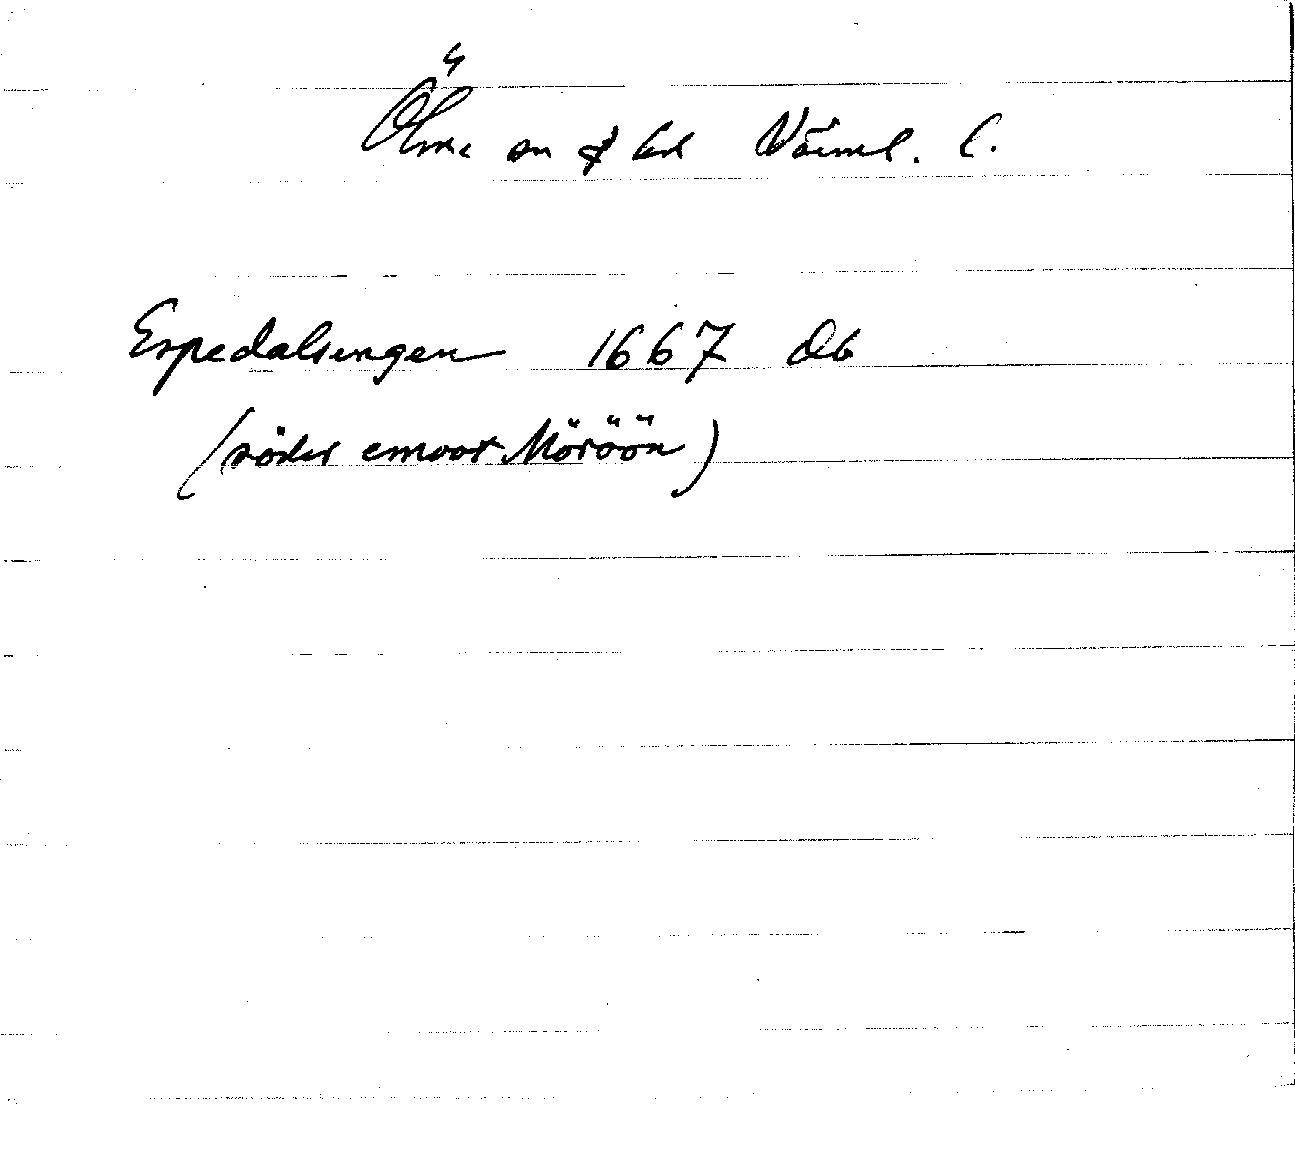 Ölme sn & hd Värml. l.
Espedalsengen 1667 Db
(söder emoot Möröön)